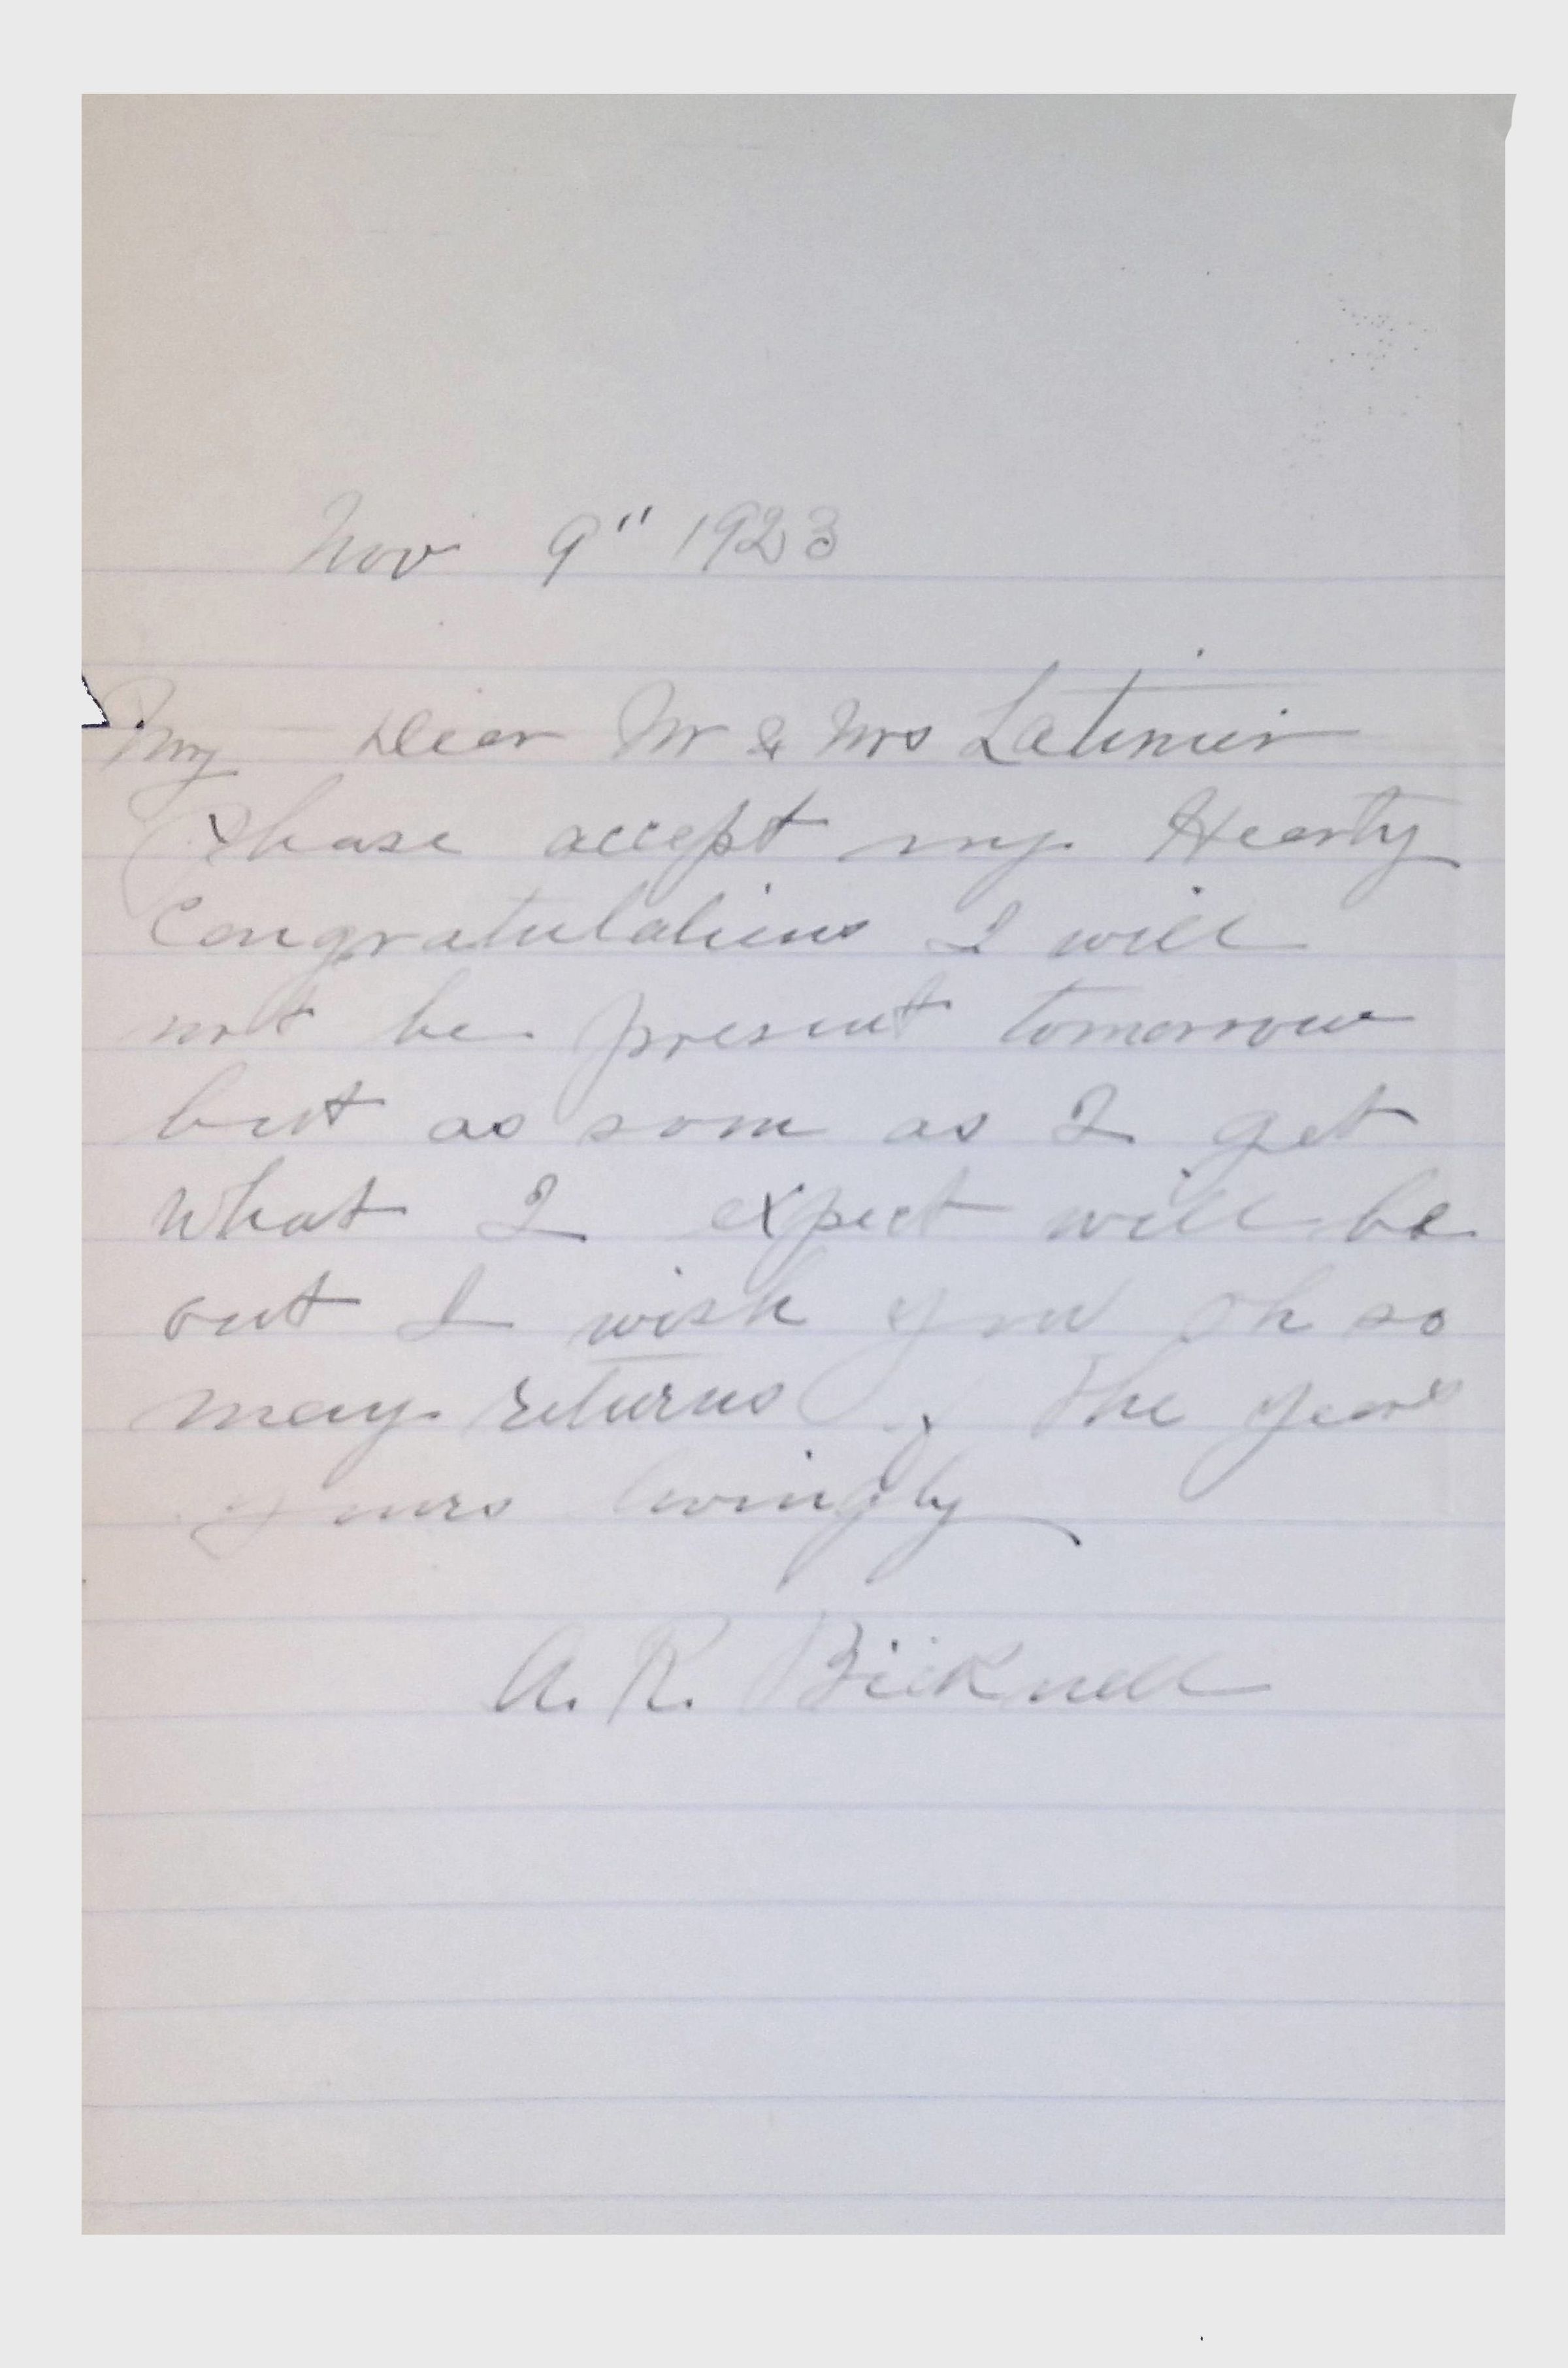 Nov 9" 1923
My Dear Mr & Mrs Latimer
Please accept my Hearty
Congratulations I will
not be present tomorrow
but as soon as I get
What I expect will be
out I wish you Oh so
many returns of the years
yours lovingly
A. R. Bicknell